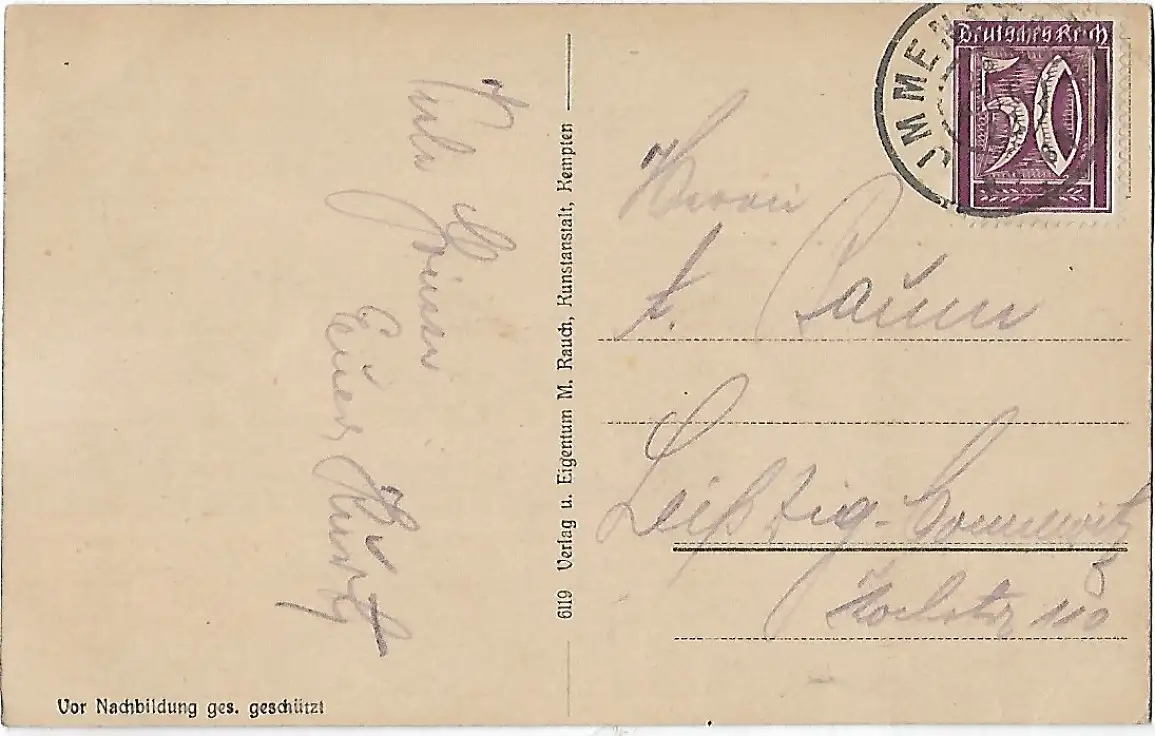 Viele Grüsse
Euer Kurt
6119 Verlag u. Eigentum M. Rauch, Kunstanstalt, Kempten
Deutsches Reich
50
Herrn
F. Baum
Leipzig-Connewitz
Kochstr 110
Vor Nachbildung ges. geschützt